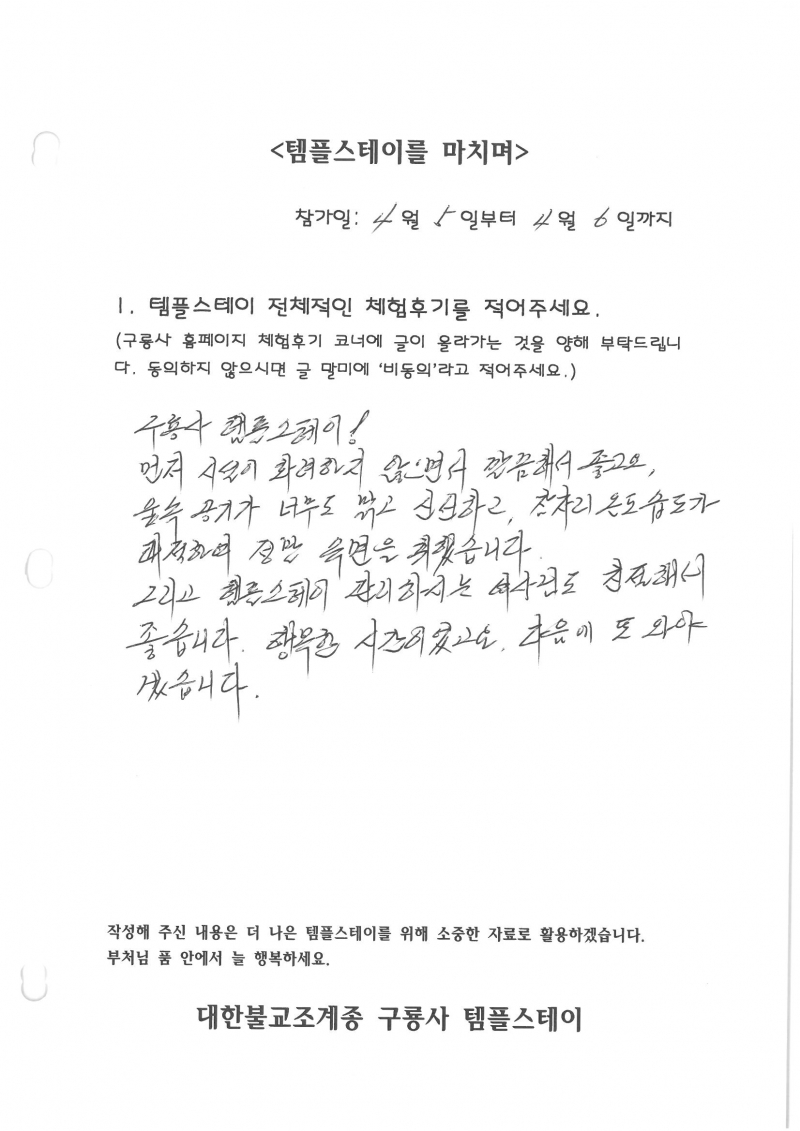 <템플스테이를 마치며>
참가일: 4월 5일부터 4월 6일까지
1. 템플스테이 전체적인 체험후기를 적어주세요.
(구룡사 홈페이지 체험후기 코너에 글이 올라가는 것을 양해 부탁드립니
다. 동의하지 않으시면 글 말미에 '비동의'라고 적어주세요.)
구룡사 템플스테이!
먼저 시설이 화려하지 않으면서 깔끔해서 좋고요,
숲속 공기가 너무도 맑고 신선하고, 잠자리 온도 습도가
쾌적하여 정말 숙면을 취했습니다.
그리고 템플스테이 관리하시는 여사님도 친절해서
좋습니다. 행복한 시간이었고요. 다음에 또 와야
겠습니다.
작성해 주신 내용은 더 나은 템플스테이를 위해 소중한 자료로 활용하겠습니다.
부처님 품 안에서 늘 행복하세요.
대한불교조계종 구룡사 템플스테이